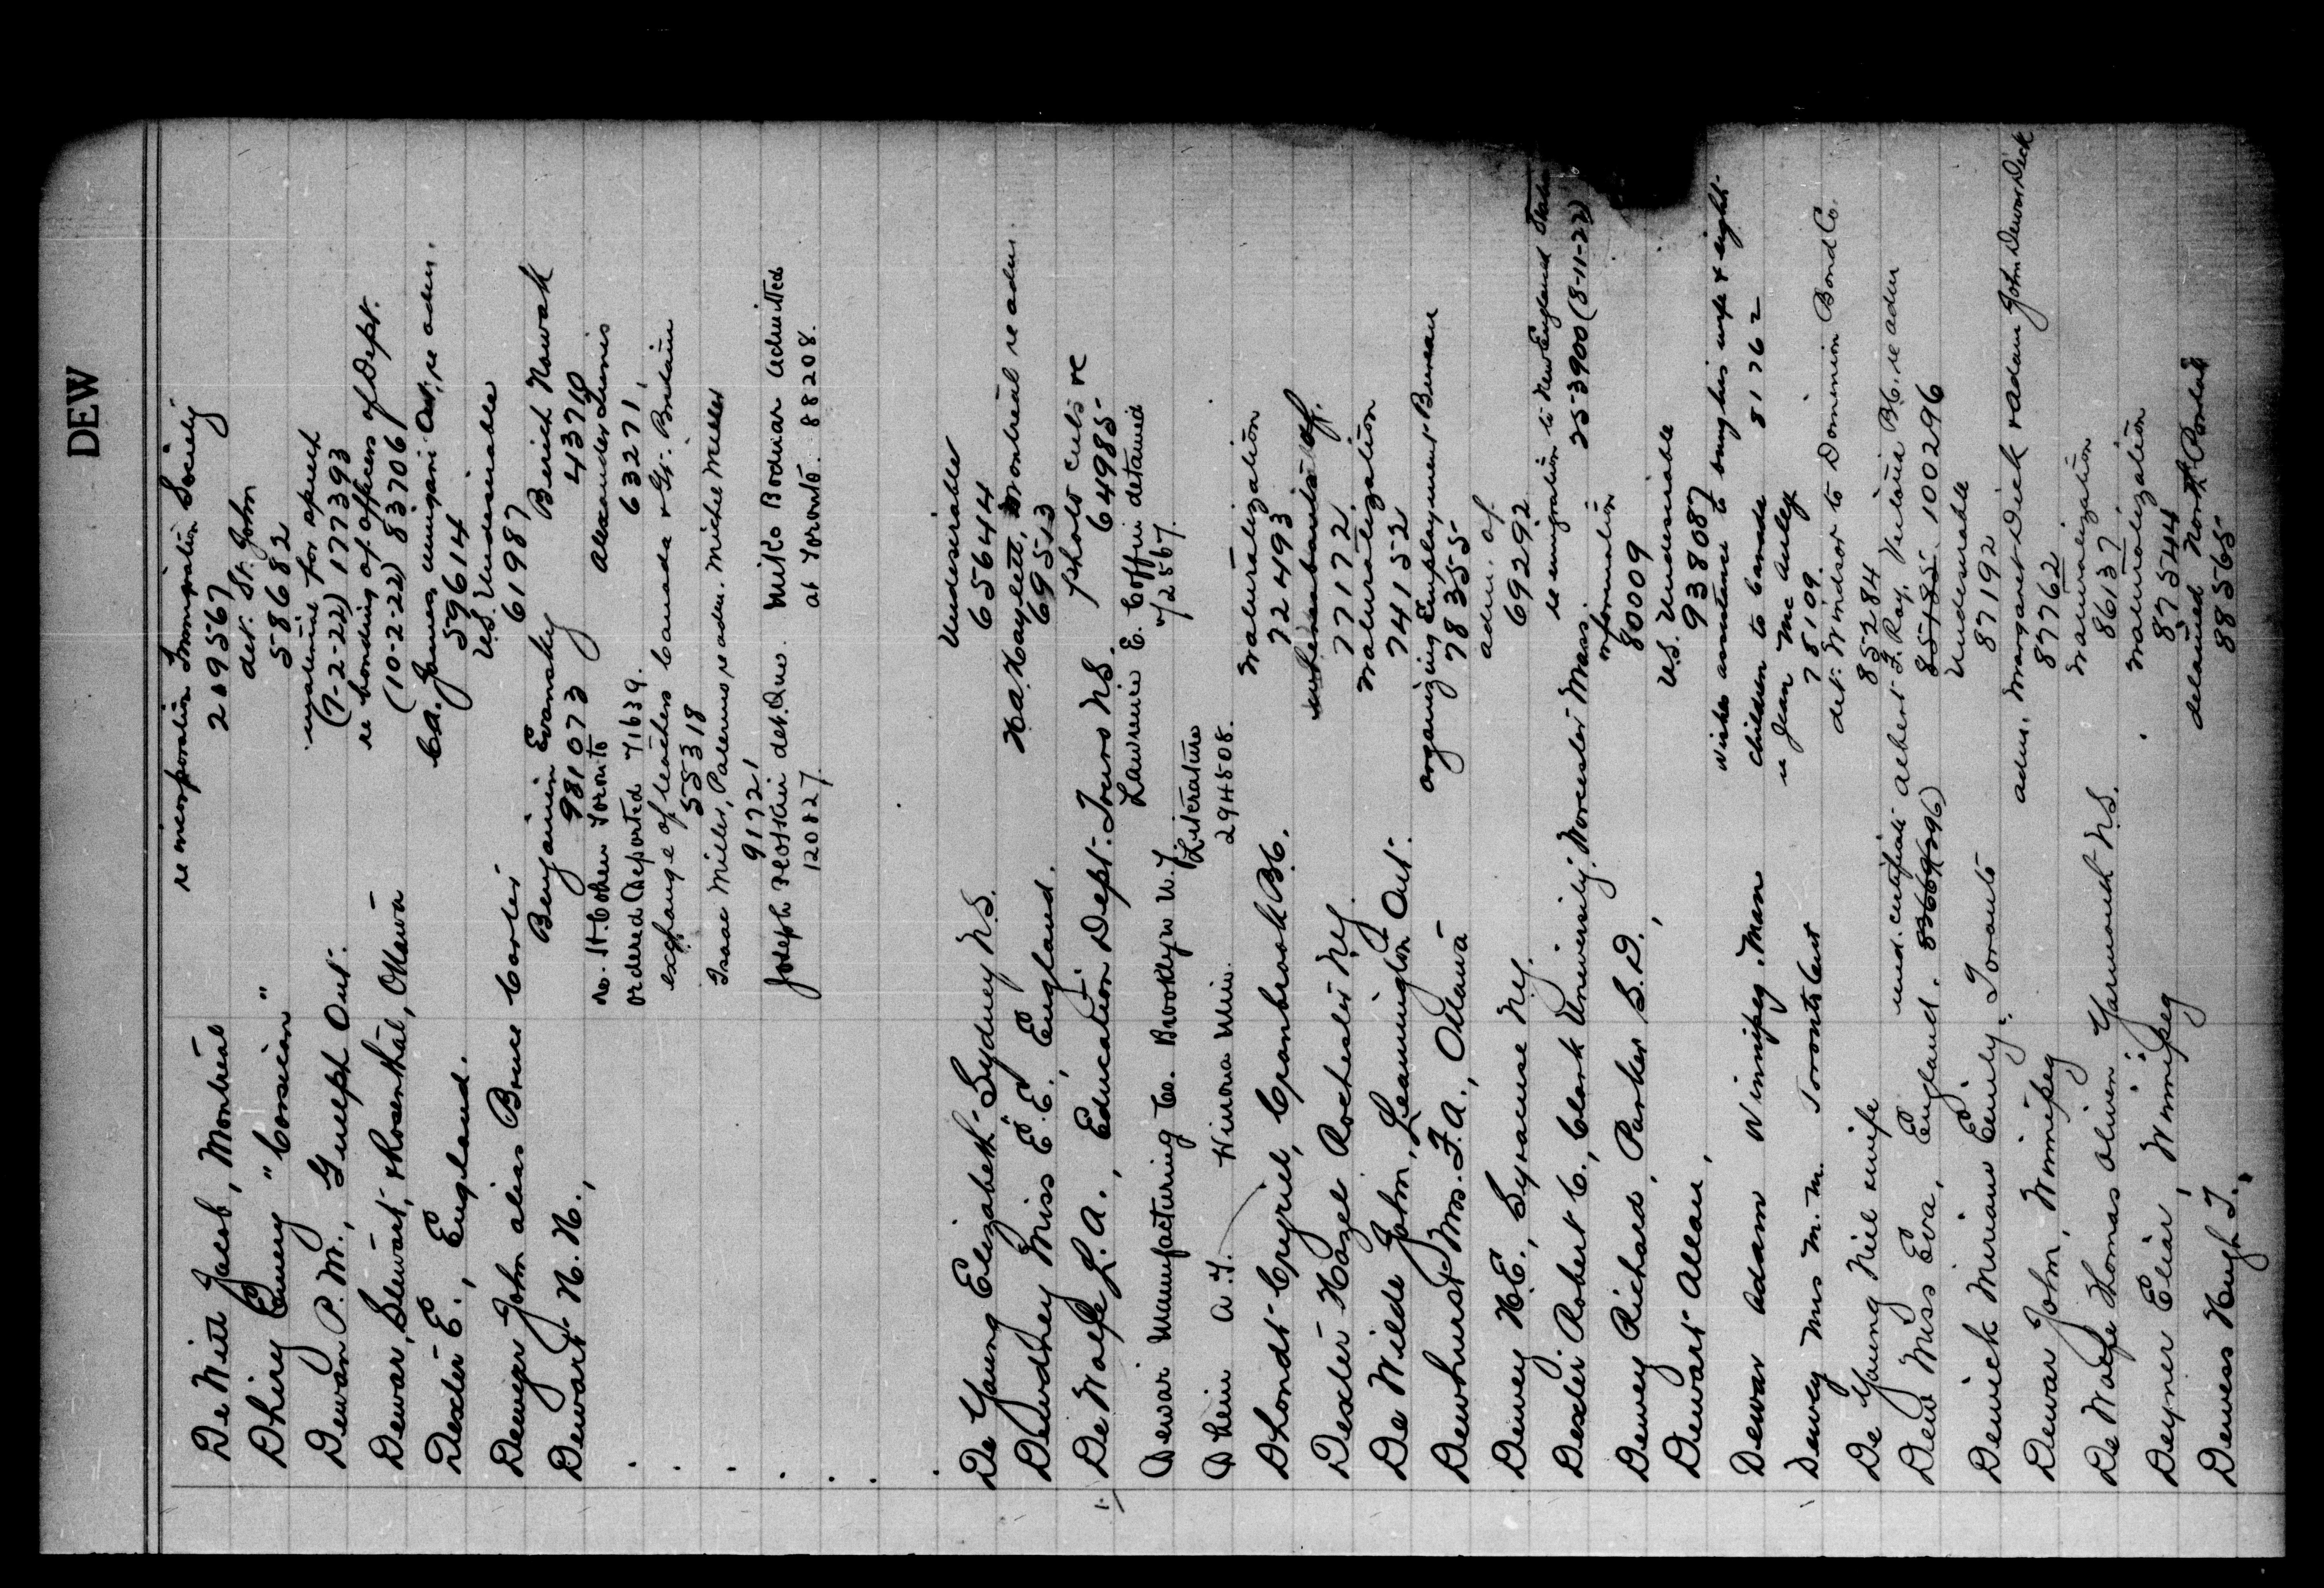 DEW
re incorporation Immigration Society
De Witt Jacob, Montreal 209567
det. St. John
Dhiry Emery "Corsican" 58682
material for speech
Dewan P. M., Guelph Ont. (7-2-22) 177393
re bonding of officers of Dept.
Dewar, Stewart, & Rosenthal, Ottawa (10-2-22) 837061
James, Ont, re adm.
Dexter E., England. 59614
U.S. Undesirable
Deweyer John alias Bruce Carter 61987
Benjamin Evansky Berich Nowak
Dewart H. H., 981073 43710
re. H. Cohen Toronto Alexander
ordered Deported 71639. 63271,
exchange of teachers Canada & Gt. Britain
55318
Isaac Miller, Palermo re adm. Michel Miller
91721
Joseph det. Que. Misko Bodnar admitted
120827 at Toronto. 88208.
Undesirable
De Young Elizabeth Sydney N.S. 65644
H.A. Haylett, Montreal re adm.
Dewdney Miss E. E., England. 69513
photo cuts re
De Wolfe L. A., Education Dept. Truro N.S. 64985
Lawrence E. Coffin detained
Dewar Manufacturing Co. Brooklyn N.Y. 72567
Literature
Dhein A. J. Winona Minn. 294508.
Naturalization
D'Hondt Cyriel, Cranbrook B.C. 72493
Dexter Hazel Rochester N.Y. 77172
Naturalization
De Wilde John, Leamington Ont. 74152
organizing Employment Bureau
Dewhurst Mrs. F. A., Ottawa 78355
adm. of
Dewey H. E., Syracuse N.Y. 69292
re emigration to New England States
Dexter Robert C., Clark University, Worcester Mass. 253900 (8-11-22)
information
Dewey Richard, Parker S.D., 80009
U.S. Undesirable
Dewart Allan, 938087
wishes assistance to bring his wife & eight
Dewar Adam Winnipeg. Man children to Canada 81762
re Jean McAuley
Dewey Mrs M. M. Toronto Ont 78109.
det. Windsor to Dominion Bond Co.
De Young Neil wife 85284
med. certificate Albert F. Ray, Victoria B.C. re adm
Dew Miss Eva, England. 100296
Undesirable
Dewick Miriam Emily, Toronto 87192
adm. Margaret Dick & adam John Dewar Dick
Dewar John, Winnipeg 87762
Naturalization
De Wolfe Thomas Oliver Yarmouth N.S. 86137
Naturalization
Deyner Eliar, Winnipeg 87544
detained North Portal
Dewess Hugh T., 88565